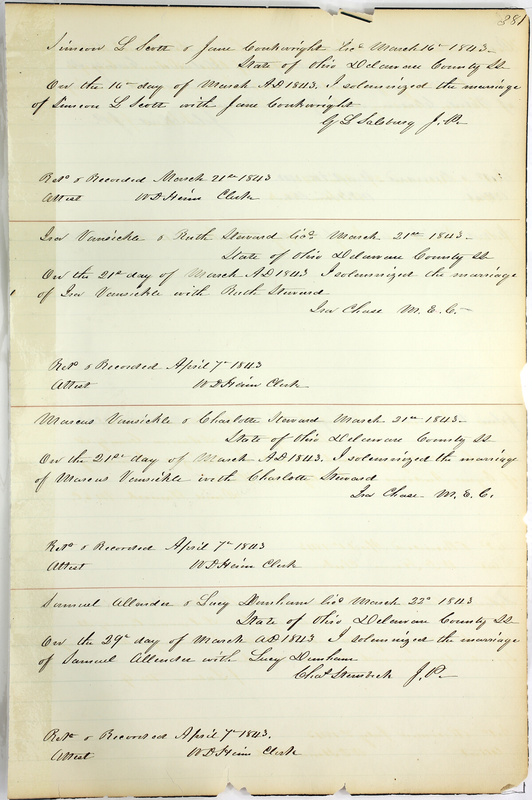 381
Simeon L Scott & Jane Conkwright Lic. March 16th 1843—
State of Ohio Delaware County SS
On the 16th day of March AD 1843. I solemnized the marriage
of Simeon L Scott with Jane Conkwright
G L Salsbury J.P.
Retd & Recorded March 21st 1843
Attest W D Heim Clerk
Ira Vansickle & Ruth Steward Lic. March 21st 1843—
State of Ohio Delaware County SS
On the 21st day of March AD 1843 I solemnized the marriage
of Ira Vansickle with Ruth Steward
Ira Chase M. E. C.—
Retd & Recorded April 7th 1843
Attest W D Heim Clerk
Marcus Vansickle & Charlotte Steward March 21st 1843—
State of Ohio Delaware County SS
On the 21st day of March AD 1843. I solemnized the marriage
of Marcus Vansickle with Charlotte Steward
Ira Chase M. E. C.
Retd & Recorded April 7th 1843
Attest W D Heim Clerk
Samuel Allender & Lucy Dunham Lic March 22d 1843
State of Ohio Delaware County SS
On the 29th day of March AD 1843 I solemnized the marriage
of Samuel Allender with Lucy Dunham
Chas J.P.—
Retd & Recorded April 7th 1843.
Attest W D Heim Clerk